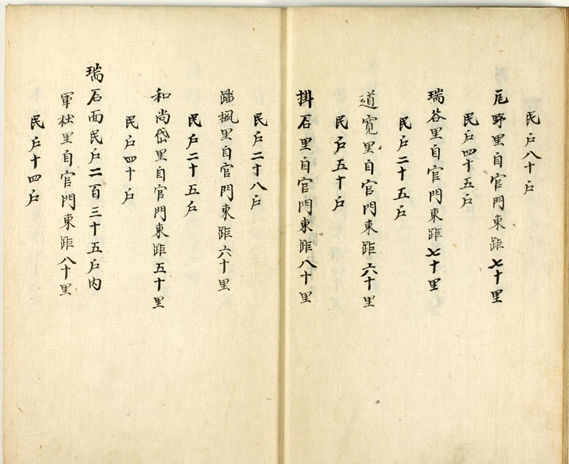 民戶八十戶
尾野里自官門東距七十里
民戶四十五戶
瑞谷里自官門東距七十里
民戶二十五戶
道寬里自官門東距六十里
民戶五十戶
掛石里自官門東距八十里
民戶二十八戶
踏楓里自官門東距六十里
民戶二十五戶
和尚岱里自官門東距五十里
民戶四十戶
瑞石面民戶二百三十五戶內
軍杜里自官門東距八十里
民戶十四戶